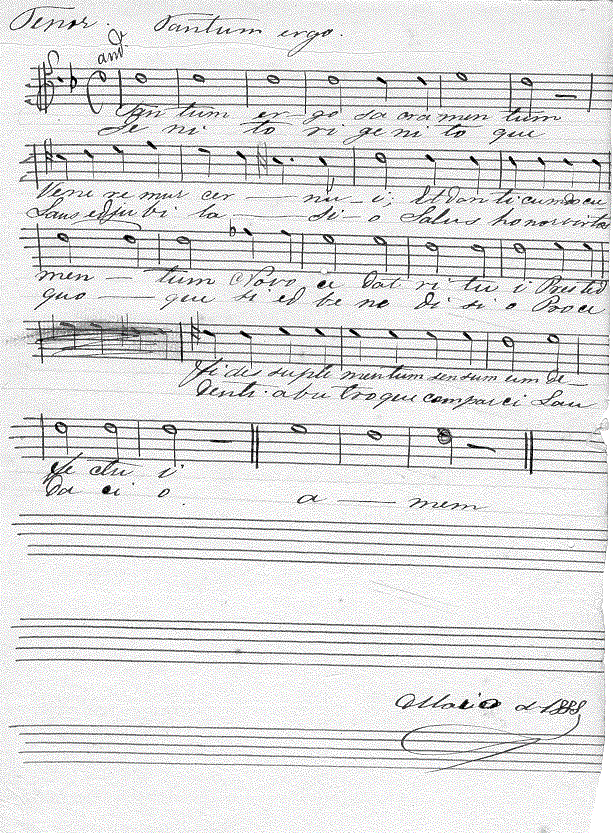 Tenor. Tantum ergo.
and.e
Tan tum er go sa cra men tum
Ge ni to ri ge ni to que
Vene re mur cer — nu — i; Et dan ti cum docu
Laus ed ju bi la — — si — o Salus honor virtus
men — tum Novo ce dat ri tu i Pres ted
quo — — que si ed be ne di si o Proce
Fi des suple mentum sensum um de —
denti abu troque compar ci Lau
fe ctu i
da ci o. a — mem
Maio d 1888